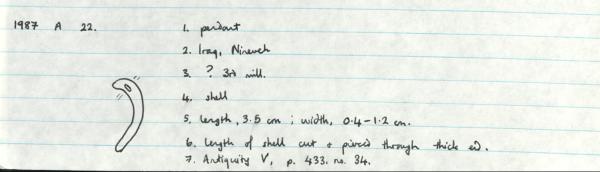 1987 A 22.
1. pendant
2. Iraq, Nineveh
3. ? 3rd mill.
4. shell
5. length, 3.5 cm ; width, 0.4-1.2 cm.
6. length of shell cut & pierced through thick ed.
7. Antiquity V, p. 433. no. 34.